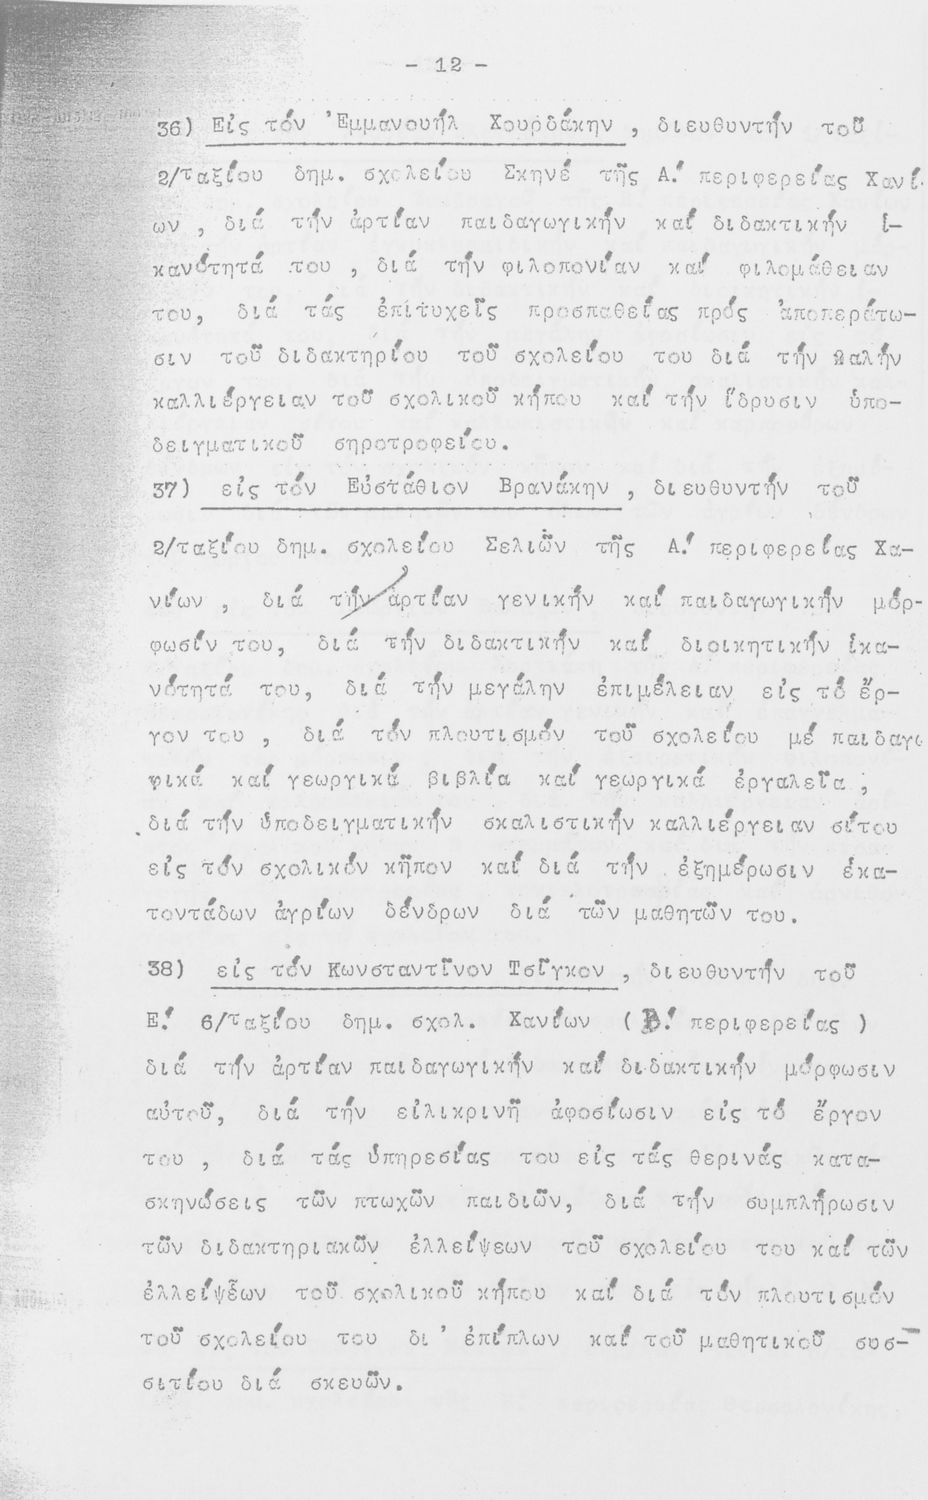 - 12 -
36) Εἰς τόν Ἐμμανουήλ Χουρδάκην , διευθυντήν τοῦ
2/ταξίου δημ. σχολείου Σκηνέ τῆς Α.' περιφερείας Χανί-
ων , διά τήν ἀρτίαν παιδαγωγικήν καί διδακτικήν ἱ-
κανότητά του , διά τήν φιλοπονίαν καί φιλομάθειαν
του, διά τάς ἐπιτυχεῖς προσπαθείας πρός ἀποπεράτω-
σιν τοῦ διδακτηρίου τοῦ σχολείου του διά τήν καλήν
καλλιέργειαν τοῦ σχολικοῦ κήπου καί τήν ἵδρυσιν ὑπο-
δειγματικοῦ σηροτροφείου.
37) εἰς τόν Εὐστάθιον Βρανάκην , διευθυντήν τοῦ
2/ταξίου δημ. σχολείου Σελιῶν τῆς Α.' περιφερείας Χα-
νίων , διά τήν ἀρτίαν γενικήν καί παιδαγωγικήν μόρ-
φωσίν του, διά τήν διδακτικήν καί διοικητικήν ἱκα-
νότητά του, διά τήν μεγάλην ἐπιμέλειαν εἰς τό ἔρ-
γον του , διά τόν πλουτισμόν τοῦ σχολείου μέ παιδαγω
φικά καί γεωργικά βιβλία καί γεωργικά ἐργαλεῖα ,
διά τήν ὑποδειγματικήν σκαλιστικήν καλλιέργειαν σίτου
εἰς τόν σχολικόν κῆπον καί διά τήν ἐξημέρωσιν ἑκα-
τοντάδων ἀγρίων δένδρων διά τῶν μαθητῶν του.
38) εἰς τόν Κωνσταντῖνον Τσῖγκον , διευθυντήν τοῦ
Ε.' 6/ταξίου δημ. σχολ. Χανίων ( Β.' περιφερείας )
διά τήν ἀρτίαν παιδαγωγικήν καί διδακτικήν μόρφωσιν
αὐτοῦ, διά τήν εἰλικρινῆ ἀφοσίωσιν εἰς τό ἔργον
του , διά τάς ὑπηρεσίας του εἰς τάς θερινάς κατα-
σκηνώσεις τῶν πτωχῶν παιδιῶν, διά τήν συμπλήρωσιν
τῶν διδακτηριακῶν ἐλλείψεων τοῦ σχολείου του καί τῶν
ἐλλείψεων τοῦ σχολικοῦ κήπου καί διά τόν πλουτισμόν
τοῦ σχολείου του δι' ἐπίπλων καί τοῦ μαθητικοῦ συσ-
σιτίου διά σκευῶν.